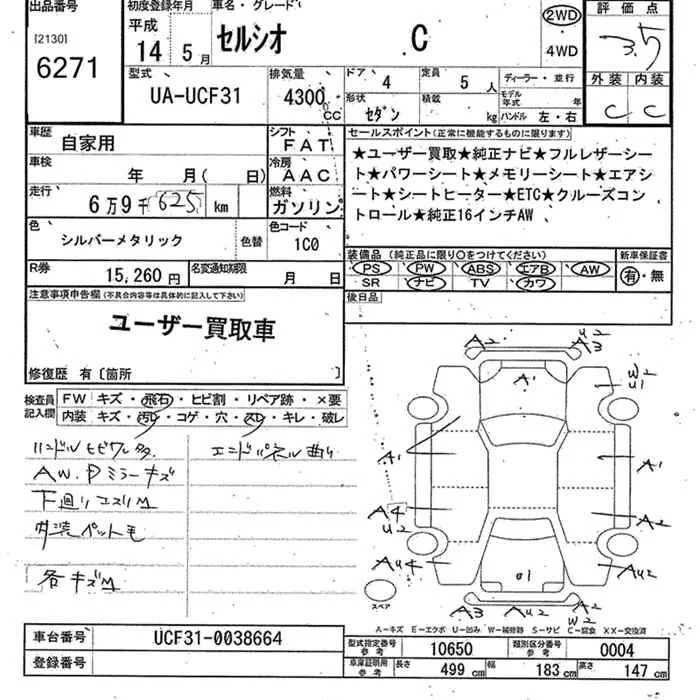 出品番号 初度登録年月 車名・グレード 2WD 評価点
[2130] 平成 セルシオ C 4WD 3.5
6271 14 5月 外装 内装
C C
型式 排気量 ドア 4 定員 5人 ディーラー・並行
UA-UCF31 4300CC 形状 セダン 積載 kg モデル年式 年
ハンドル 左・右
車歴 自家用 シフト FAT セールスポイント(正常に機能するものに限ります)
車検 年 月( 日) 冷房 AAC ★ユーザー買取★純正ナビ★フルレザーシー
ト★パワーシート★メモリーシート★エアシ
走行 6万9千625 km 燃料 ガソリン ート★シートヒーター★ETC★クルーズコン
トロール★純正16インチAW
色 シルバーメタリック 色替 色コード 1C0
装備品(純正品に限り○をつけてください) 新車保証書
PS PW ABS エアB AW 有・無
SR ナビ TV カワ
R券 15,260円 名変通知期限 月 日
後日品
注意事項申告欄(不具合内容等は具体的に記入して下さい)
ユーザー買取車
修復歴 有〔箇所 〕
検査員記入欄 FW キズ・飛石・ヒビ割・リペア跡・×要
内装 キズ・汚れ・コゲ・穴・スレ・キレ・破レ
ハンドルヒビワレ多 エンドパネル曲り
AW.Pミラーキズ
下廻りコスリM
内装ペット毛
各キズM
A2 U2 A3
A1 W2 U1
A1 A1
A4 U2 A2
AU4 O1 AU2
スペア
A3 AU2 U2 W2
A-キズ E-エクボ U-凹み W-補修跡 S-サビ C-腐食 XX-交換済
車台番号 UCF31-0038664 型式指定番号 参考 10650 類別区分番号 参考 0004
登録番号 車庫証明用 参考 長さ 499 cm 幅 183 cm 高さ 147 cm